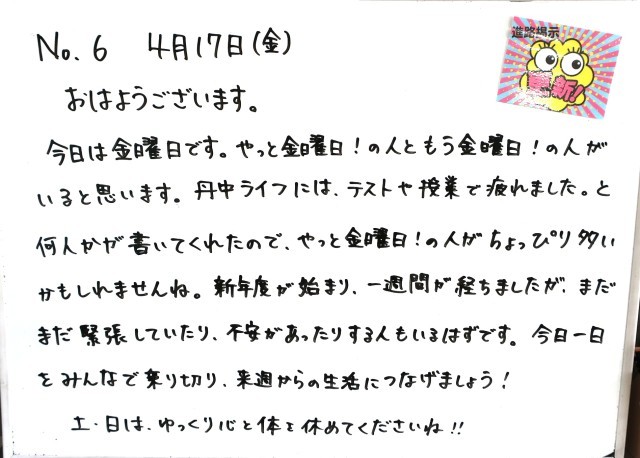 No. 6 4月17日(金)
進路掲示
更新!
おはようございます。
今日は金曜日です。やっと金曜日!の人ともう金曜日!の人が
いると思います。丹中ライフには、テストや授業で疲れました。と
何人かが書いてくれたので、やっと金曜日!の人がちょっぴり多い
かもしれませんね。新年度が始まり、一週間が経ちましたが、まだ
まだ緊張していたり、不安があったりする人もいるはずです。今日一日
をみんなで乗り切り、来週からの生活につなげましょう!
土・日は、ゆっくり心と体を休めてくださいね!!